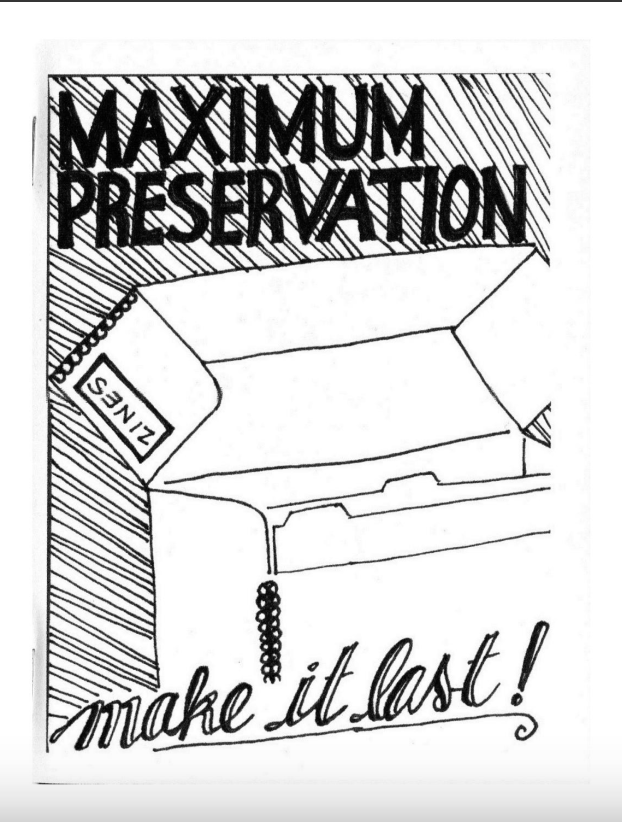 MAXIMUM
PRESERVATION
ZINES
make it last!